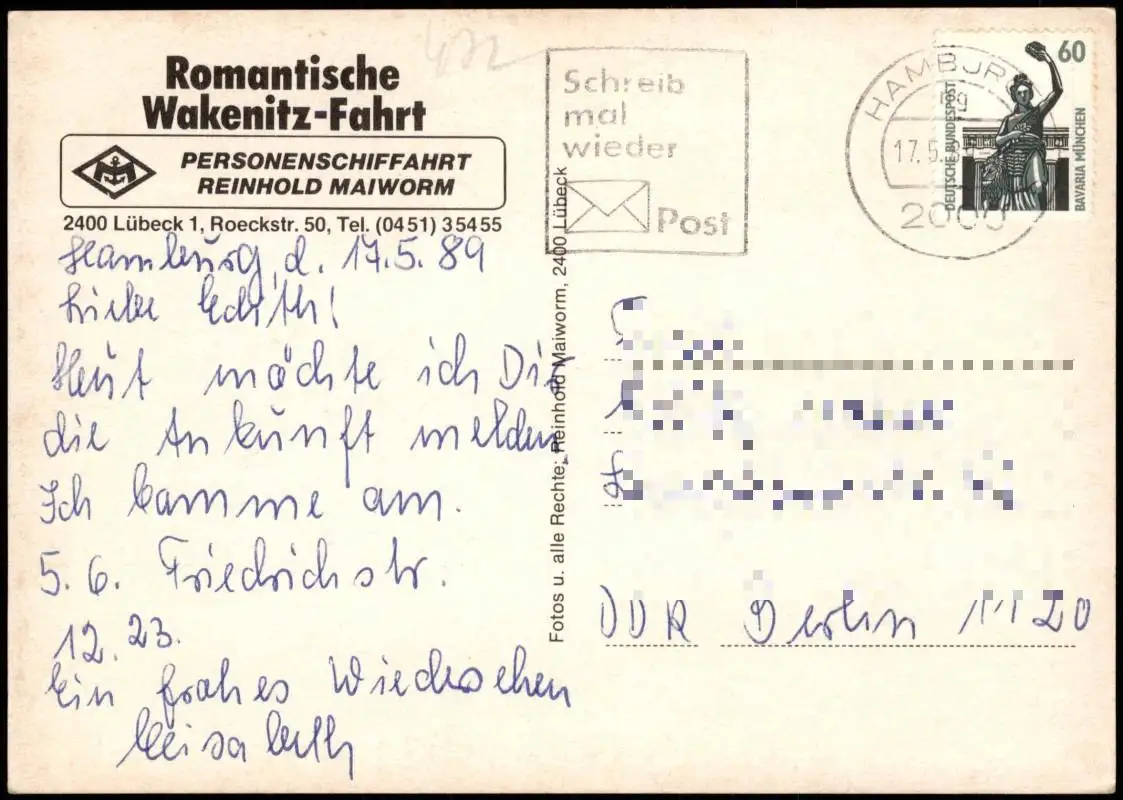 432
Romantische
Wakenitz-Fahrt
PERSONENSCHIFFAHRT
REINHOLD MAIWORM
2400 Lübeck 1, Roeckstr. 50, Tel. (0451) 35455
Schreib
mal
wieder
Post
HAMBURG
17.5.89
2000
60
DEUTSCHE BUNDESPOST
BAVARIA MÜNCHEN
Hamburg, d. 17.5.89
Liebe Edith!
Heut möchte ich Dir
die Ankunft melden,
Ich komme am.
5.6. Friedrichstr.
12.23.
Ein frohes Wiedersehen
Elisabeth
Fotos u. alle Rechte: Reinhold Maiworm, 2400 Lübeck
DDR Berlin 1120